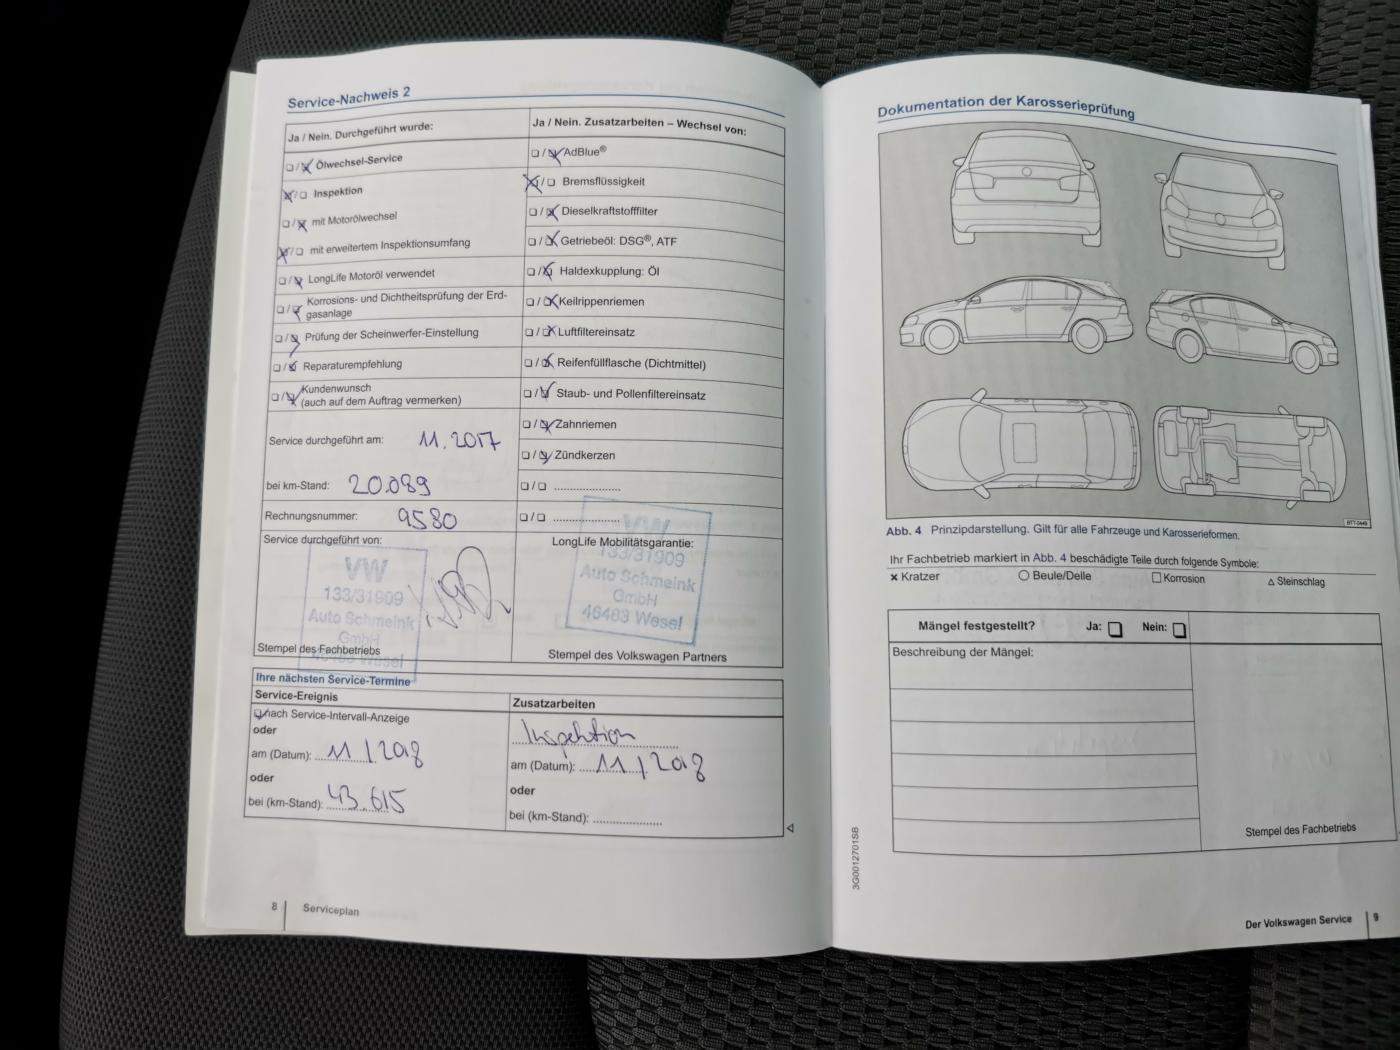 Service-Nachweis 2
Ja / Nein. Durchgeführt wurde:
Ölwechsel-Service
Inspektion
mit Motorölwechsel
mit erweitertem Inspektionsumfang
LongLife Motoröl verwendet
Korrosions- und Dichtheitsprüfung der Erd-
gasanlage
Prüfung der Scheinwerfer-Einstellung
Reparaturempfehlung
Kundenwunsch
(auch auf dem Auftrag vermerken)
Service durchgeführt am: 11.2017
bei km-Stand: 20.089
Rechnungsnummer: 9580
Service durchgeführt von:
VW
133/31909
Auto Schmeink
GmbH
46483 Wesel
Stempel des Fachbetriebs
Ja / Nein. Zusatzarbeiten – Wechsel von:
AdBlue®
Bremsflüssigkeit
Dieselkraftstofffilter
Getriebeöl: DSG®, ATF
Haldexkupplung: Öl
Keilrippenriemen
Luftfiltereinsatz
Reifenfüllflasche (Dichtmittel)
Staub- und Pollenfiltereinsatz
Zahnriemen
Zündkerzen
LongLife Mobilitätsgarantie:
VW
133/31909
Auto Schmeink
GmbH
46483 Wesel
Stempel des Volkswagen Partners
Ihre nächsten Service-Termine
Service-Ereignis
nach Service-Intervall-Anzeige
oder
am (Datum): 11/2018
oder
bei (km-Stand): 43.615
Zusatzarbeiten
Inspektion
am (Datum): 11/2018
oder
bei (km-Stand):
8 Serviceplan
Dokumentation der Karosserieprüfung
BTT-0449
Abb. 4 Prinzipdarstellung. Gilt für alle Fahrzeuge und Karosserieformen.
Ihr Fachbetrieb markiert in Abb. 4 beschädigte Teile durch folgende Symbole:
× Kratzer ○ Beule/Delle □ Korrosion △ Steinschlag
Mängel festgestellt? Ja: Nein:
Beschreibung der Mängel:
Stempel des Fachbetriebs
3G0012701SB
Der Volkswagen Service 9